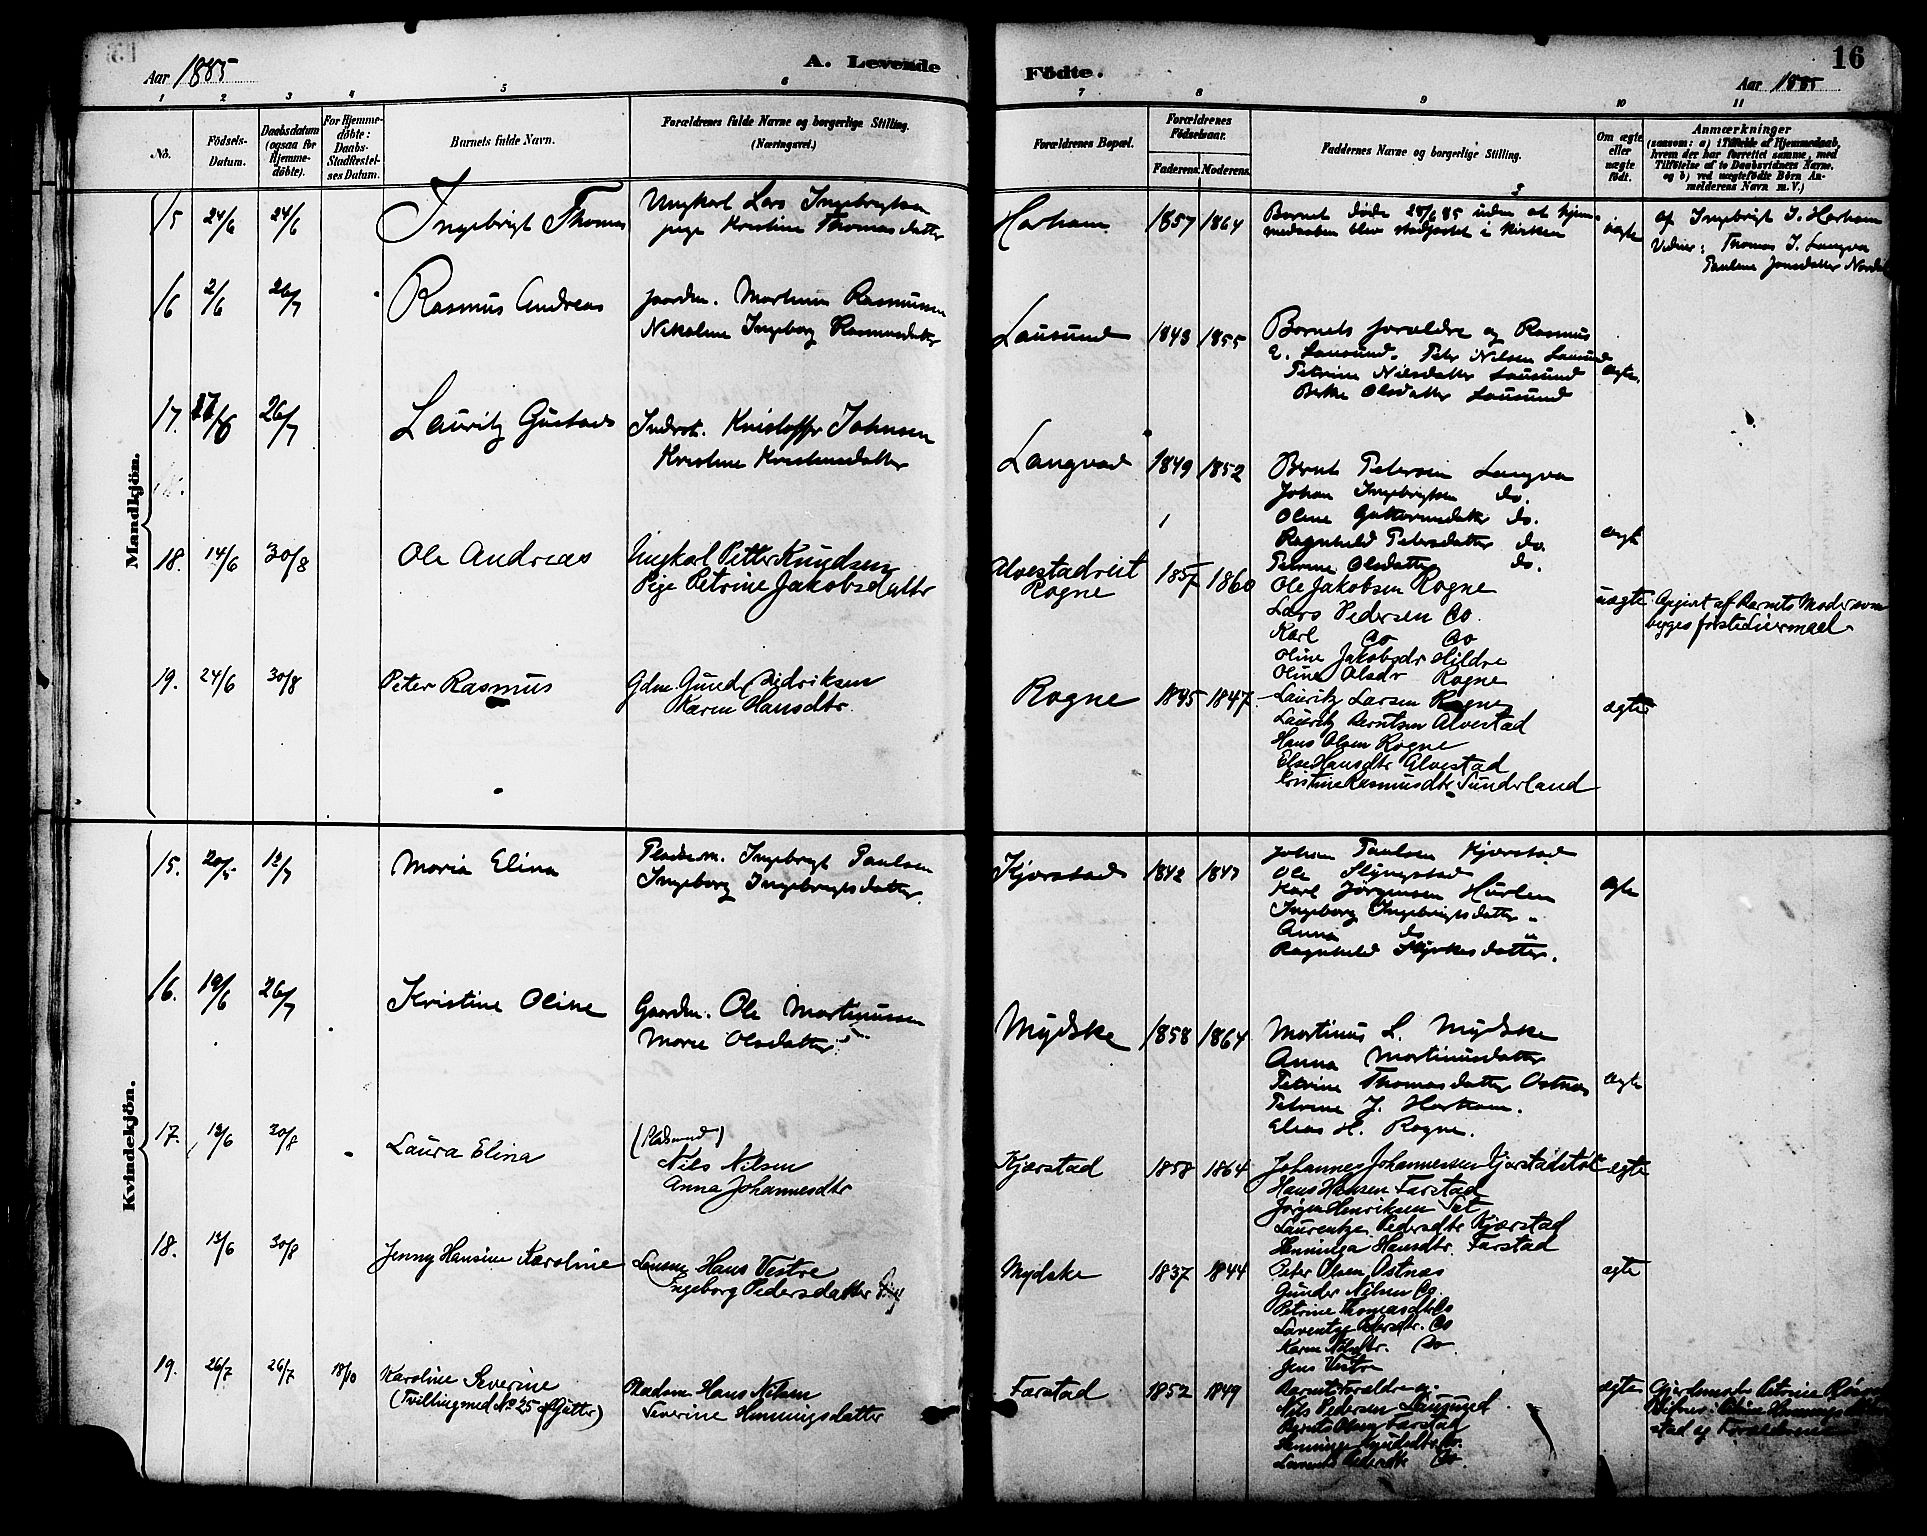 Aar 1885
A. Levende
Födte.
16
Aar 1885
1 2 3 4 5 6 7 8 9 10 11
No.
Födsels-Datum.
Daabsdatum (ogsaa for Hjemme-döbte).
For Hjemme-döbte: Daabs-Stadfæstel-ses Datum.
Barnets fulde Navn.
Forældrenes fulde Navne og borgerlige Stilling. (Næringsvei.)
Forældrenes Bopæl.
Forældrenes Födselsaar.
Faderens. Moderens.
Faddernes Navne og borgerlige Stilling.
Om ægte eller uægte födt.
Anmærkninger
(saasom: a) i Tilfælde af Hjemmedaab,
hvem der har forrettet samme, med
Tilföielse af to Daabsvidners Navne.
og b) ved uægtefödte Börn An-
melderens Navn m. V.)
Mandkjön.
15 24/6 24/6 Ingebrigt Thomas
Ungkarl Lars Ingebrigtsen
pige Kristine Thomasdatter
Harham 1857 1864
Barnet døde 28/6 85 uden at hjem-
medaaben blev stadfæstet i Kirken
uægte
af Ingebrigt J. Harham
Vidner: Thomas J. Langva
Pauline Jonsdatter
16 2/6 26/7 Rasmus Andreas
Gaardm. Martinus Rasmussen
Nikoline Ingeborg Rasmusdatter
Lausund 1843 1855
Barnets forældre og Rasmus
E. Lausund. Peter Nilsen Lausund
Petrine Nilsdatter Lausund
Berthe Olsdatter Lausund
ægte.
17. 26/7 Lauritz Gustav
Inderst. Kristoffer Johnsen
Kristine Kristensdatter
Langvad 1849 1852
Bernt Petersen Langva
Johan Ingebrigtsen do.
Oline Guttormsdatter do.
Ragnhild Petersdatter do.
Petrine Olsdatter do.
ægte
18. 14/6 30/8 Ole Andreas
Ungkarl Petter Knudsen
Pige Petrine Jakobsdatter
Alvestadreit
Rogne
1857 1860
Ole Jakobsen Rogne
Lars Pedersen Do.
Karl Do Do
Oline Jakobsdr Hildre
Oline Olsdr Rogne
uægte
Opgivet af Barnets Moder som
begges første Leiermaal.
19. 24/6 30/8 Peter Rasmus
Gdm. Gunder Didriksen
Karen Hansdtr.
Rogne 1845 1847
Lauritz Larsen Rogne
Lauritz Berntsen Alvestad
Hans Olsen Rogne
Else Hansdtr Alvestad
Kristine Rasmusdtr Sunderland
ægte
Kvindekjön.
15. 20/5 12/7 Maria Elina
Pladsm. Ingebrigt Paulsen
Ingeborg Ingebrigtsdatter.
Kjørstad 1842 1847
Johan Paulsen Kjørstad
Ole Slyngstad
Karl Jørgensen Hurlen
Ingeborg Ingebrigtsdatter "
Anna do "
Ragnhild Styrkesdatter.
ægte
16. 19/6 26/7 Kristine Oline
Gaardm. Ole Martinussen
Marie Olsdatter
Mydske 1858 1864
Martinus L. Mydske
Anna Martinusdatter
Petrine Thomasdatter Ostnæs
Petrine J. Harham.
Elias H. Rogne.
ægte
17. 12/6 30/8 Laura Elina
(Pladsmand)
Nils Nilsen
Anna Johannesdtr
Kjærstad 1858 1864
Johannes Johannessen Kjærstadstøl
Hans Hansen Farstad
Jörgen Henriksen Sæt
Laurentze Pedersdtr Kjærstad
Henninga Hansdtr. Farstad
ægte
18. 13/6 30/8 Jenny Hansine Karoline
Lensm Hans Vestre
Ingeborg Pedersdatter
Mydske 1837 1844
Peter Olsen Ostnæs
Gunder Nilsen Do.
Petrine Thomasdtr Do
Laventze Pedersdtr. Do
Karen Nilsdtr. Do
Jens Vestre
ægte
19. 26/7 26/7 18/10 Karoline Severine
(Tvilling med No 25 af Gutter)
Pladsm Hans Nilsen
Severine Henningsdatter
Farstad 1852 1849
Barnets Forældre og
Nils Pedersen Lausund
Bernt Olsen Farstad
Henninge Knudsdtr Do.
Laurentze Pedersdtr Do.
ægte
Gjordemoder Petrine
Vidner:
stad og Forældrene